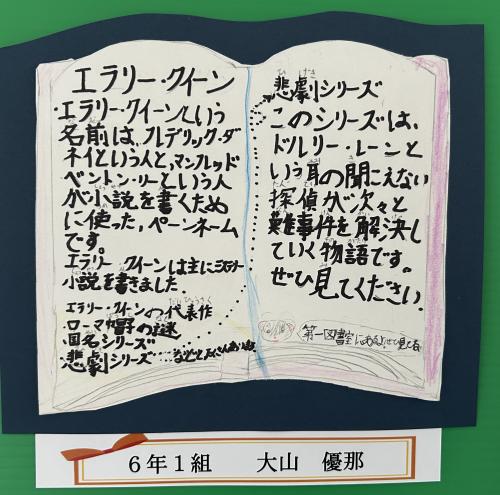 エラリー・クイーン
・エラリー・クイーンという
名前は、フレデリック・ダ
ネイという人と、マンフレッド
ベントン・リーという人
が小説を書くため
に使った、ペーンネーム
です。
エラリークイーンは主にミステリー
小説を書きました。
エラリー・クイーンの代表作
ローマ帽子の謎
国名シリーズ
悲劇シリーズ
悲劇シリーズ
このシリーズは、
ドルリー・レーンと
いう耳の聞こえない
探偵が次々と
難事件を解決し
ていく物語です。
ぜひ見てください.
第一図書室にあるよ
6年1組 大山 優那